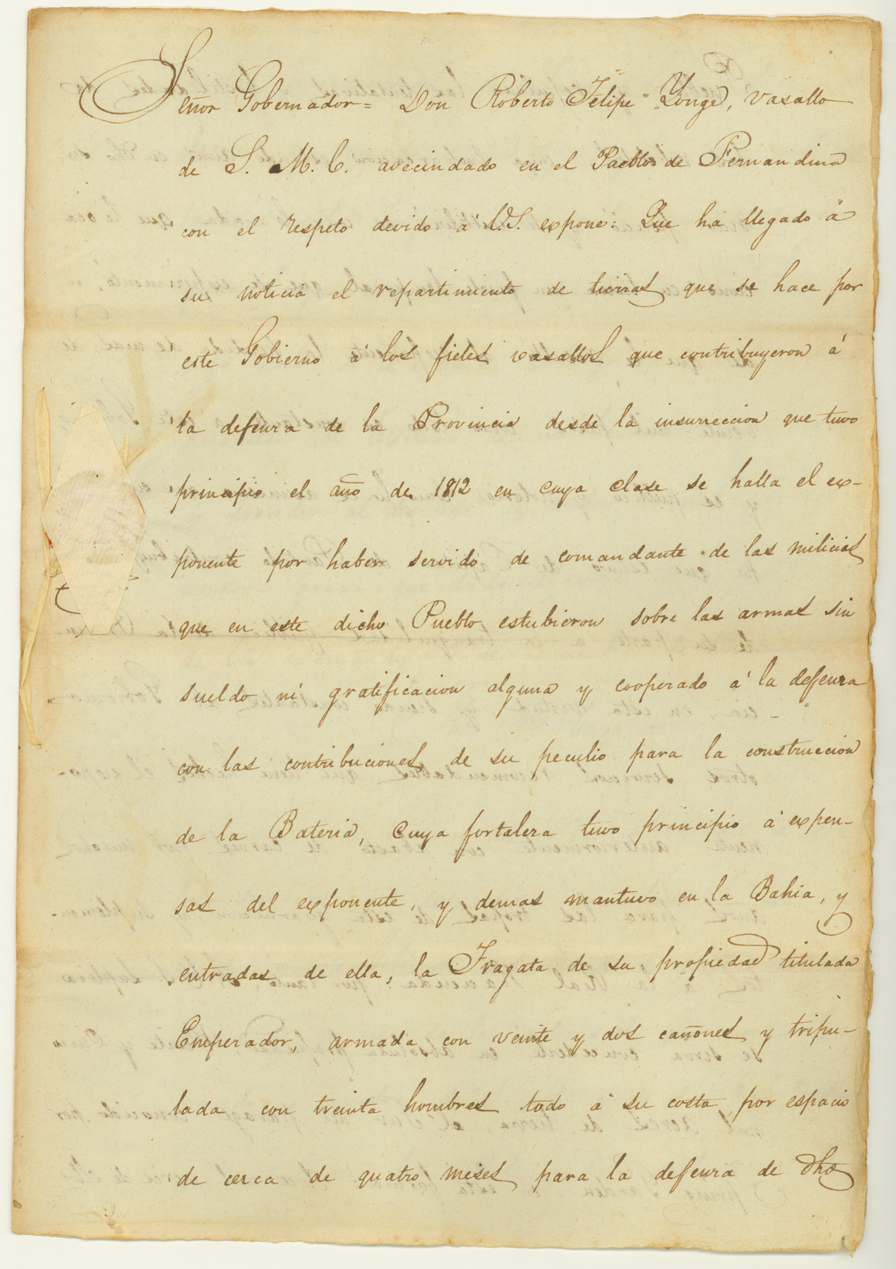 Señor Gobernador = Don Roberto Felipe Yonge, vasallo
de S. M. C. avecindado en el Pueblo de Fernandina
con el respeto devido á V.S. expone: Que ha llegado á
su noticia el repartimiento de tierras que se hace por
este Gobierno á los fieles vasallos que contribuyeron á
la defensa de la Provincia desde la insurreccion que tuvo
principio el año de 1812 en cuya clase se halla el ex-
ponente por haber servido de comandante de las milicias
que en este dicho Pueblo estubieron sobre las armas sin
sueldo ni gratificacion alguna y cooperado á la defensa
con las contribuciones de su peculio para la construccion
de la Bateria, cuya fortaleza tuvo principio á expen-
sas del exponente, y demas mantuvo en la Bahia, y
entradas de ella, la Fragata de su propiedad titulada
Emperador, armada con veinte y dos cañones y tripu-
lada con treinta hombres todo á su costa por espacio
de cerca de quatro meses para la defensa de dho